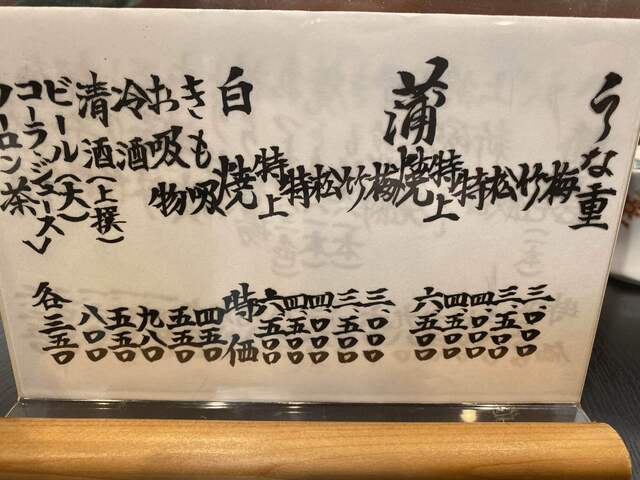 うな重
梅 三、〇〇〇
竹 三、五〇〇
松 四、〇〇〇
特 四、五〇〇
特上 六、五〇〇
蒲焼
梅 三、〇〇〇
竹 三、五〇〇
松 四、〇〇〇
特 四、五〇〇
特上 六、五〇〇
白焼 時価
きも吸 四五〇
お吸物 五五〇
冷酒 九八〇
清酒(上撰) 五五〇
ビール(大) 八〇〇
コーラ(ジュース) 各三五〇
ウーロン茶